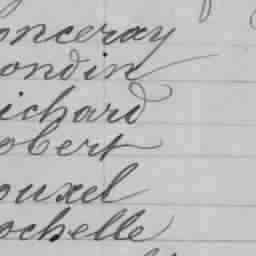 onceray
ondin
ichard
obert
ouxel
ochelle